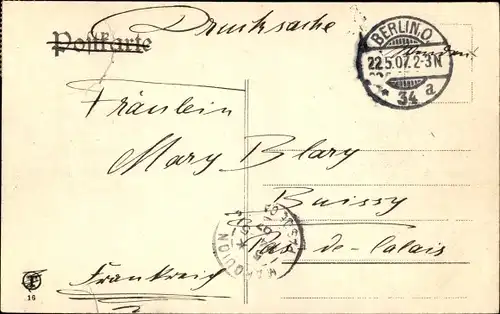 Drucksache
Postkarte
BERLIN.O.
22.5.07.2-3N.
34 a
Fräulein
Mary Blary
Buissy
Pas-de-Calais
Frankreich
MARQUION
16